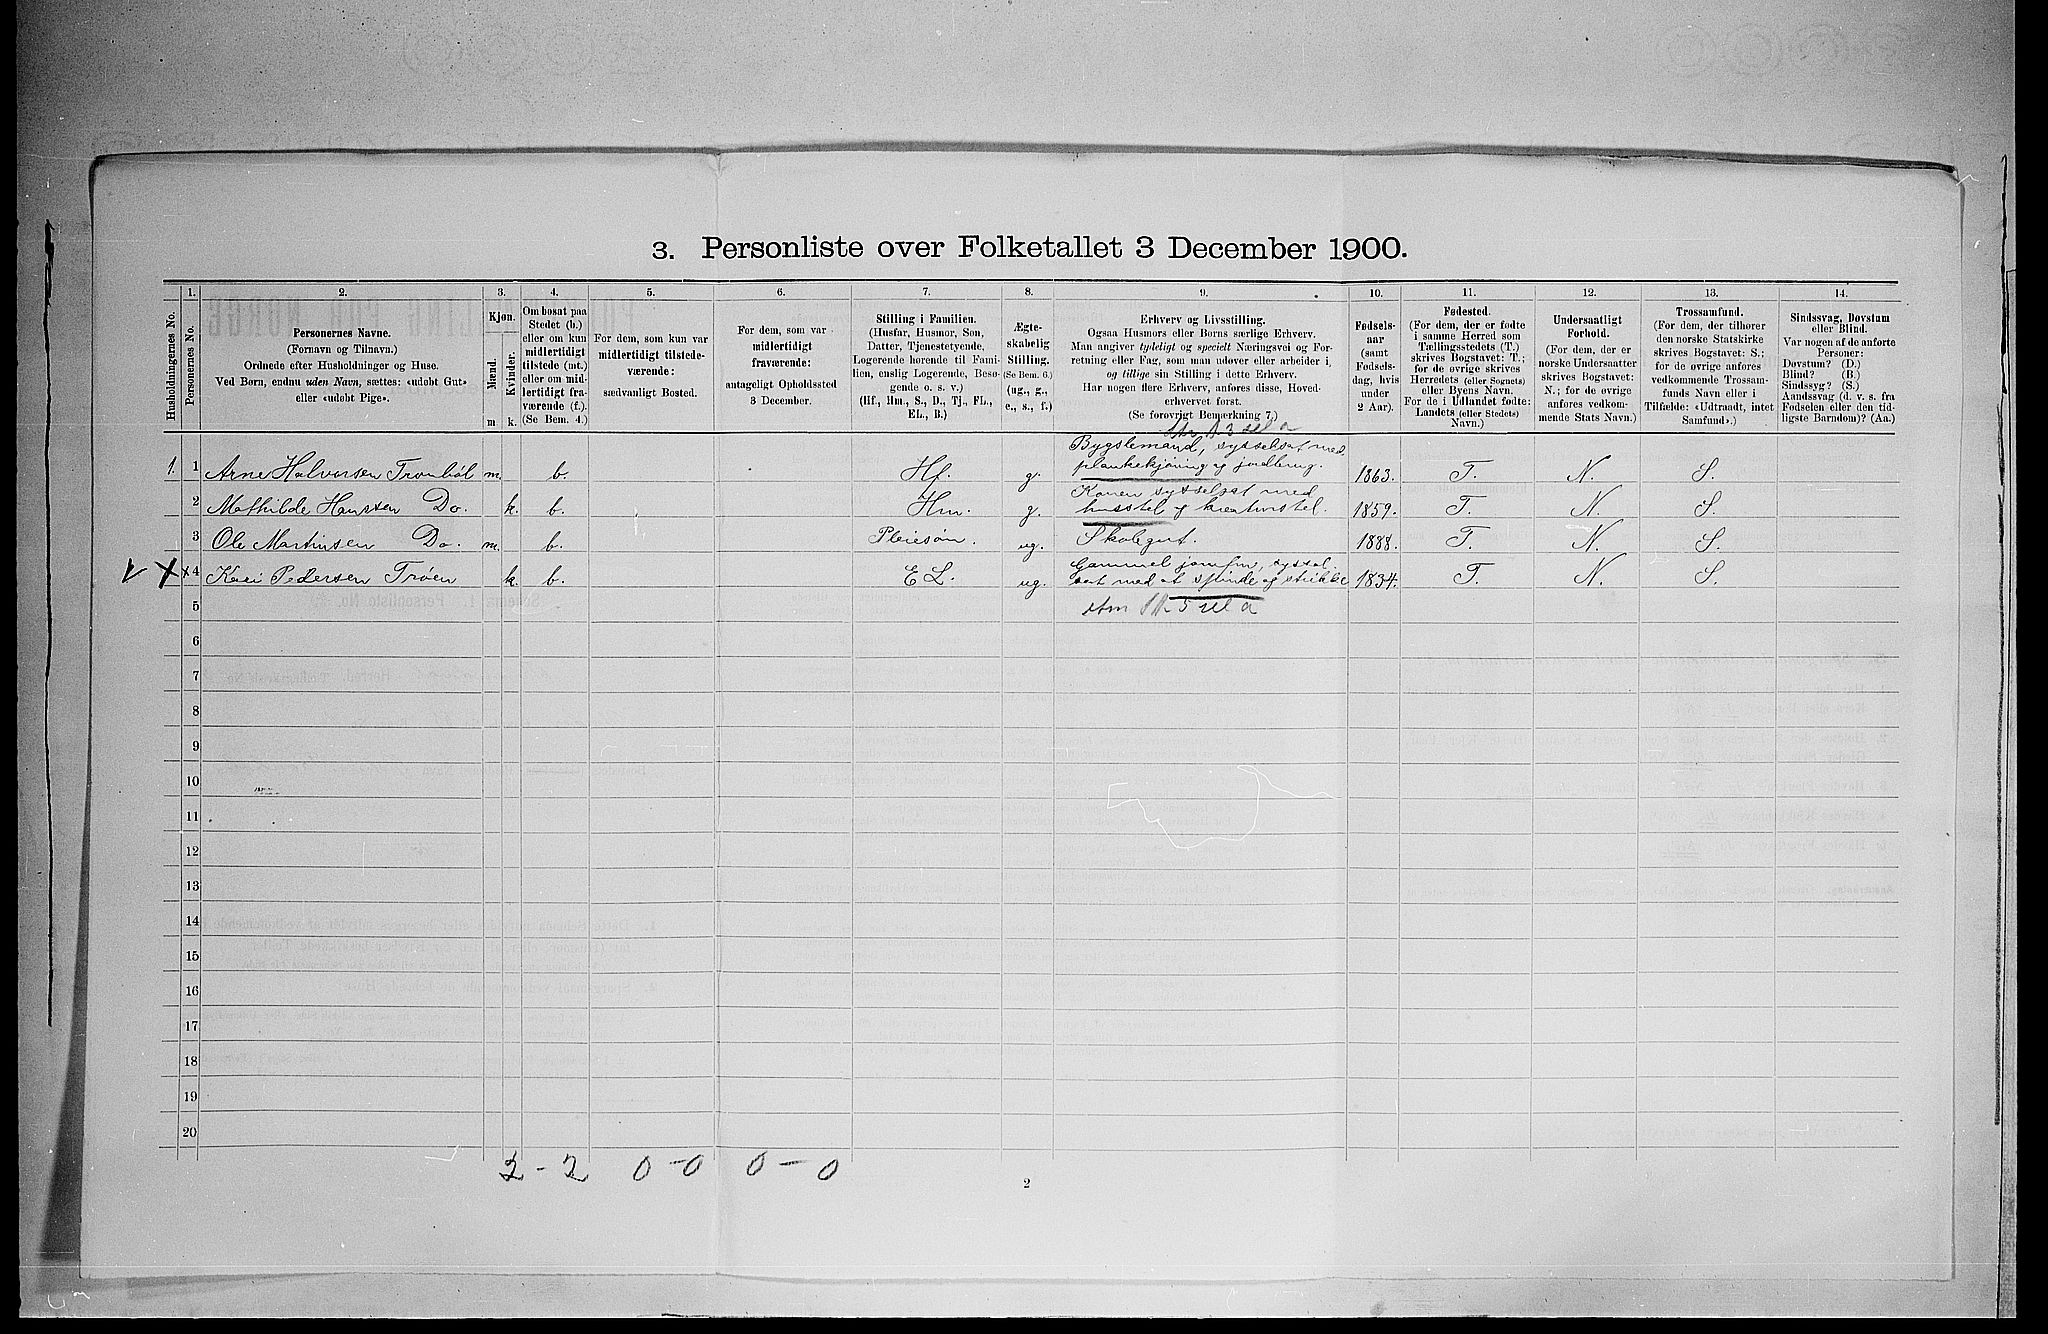 3. Personliste over Folketallet 3 December 1900.
Husholdningernes No.
1.
Personernes No.
2.
Personernes Navne.
(Fornavn og Tilnavn.)
Ordnede efter Husholdninger og Huse.
Ved Børn, endnu uden Navn, sættes: «udøbt Gut»
eller «udøbt Pige».
3.
Kjøn.
Mænd.
Kvinder.
m
k.
4.
Om bosat paa
Stedet (b.)
eller om kun
midlertidigt
tilstede (mt.)
eller om mid-
lertidigt fra-
værende (f.).
(Se Bem. 4.)
5.
For dem, som kun var
midlertidigt tilstede-
værende:
sædvanligt Bosted.
6.
For dem, som var
midlertidigt
fraværende:
antageligt Opholdssted
3 December.
7.
Stilling i Familien.
(Husfar, Husmor, Søn,
Datter, Tjenestetyende,
Logerende hørende til Fami-
lien, enslig Logerende, Besø-
gende o. s. v.)
(Hf., Hm., S., D., Tj., FL.,
EL., B.)
8.
Ægte-
skabelig
Stilling.
(Se Bem. 6.)
(ug., g.,
e., s., f.)
9.
Erhverv og Livsstilling.
Ogsaa Husmors eller Børns særlige Erhverv.
Man angiver tydeligt og specielt Næringsvei og For-
retning eller Fag, som man udøver eller arbeider i,
og tillige sin Stilling i dette Erhverv.
Har nogen flere Erhverv, anføres disse, Hoved-
erhvervet først.
(Se forøvrigt Bemærkning 7.)
10.
Fødsels-
aar
(samt
Fødsels-
dag, hvis
under
2 Aar).
11.
Fødested.
(For dem, der er fødte
i samme Herred som
Tællingsstedets (T.)
skrives Bogstavet: T.;
for de øvrige skrives
Herredets (eller Sognets)
eller Byens Navn.
For de i Udlandet fødte:
Landets (eller Stedets)
Navn.)
12.
Undersaatligt
Forhold.
(For dem, der er
norske Undersaatter
skrives Bogstavet:
N.; for de øvrige
anføres vedkom-
mende Stats Navn.)
13.
Trossamfund.
(For dem, der tilhører
den norske Statskirke
skrives Bogstavet: S.;
for de øvrige anføres
vedkommende Trossam-
funds Navn eller i
Tilfælde: «Udtraadt, intet
Samfund».)
14.
Sindssvag, Døvstum
eller Blind.
Var nogen af de anførte
Personer:
Døvstum? (D.)
Blind? (B.)
Sindssyg? (S.)
Aandssvag (d. v. s. fra
Fødselen eller den tid-
ligste Barndom)? (Aa.)
Bygslemand, sysselsat med
1. 1 Arne Halvorsen Trønbøl m. b. Hf. g. plankekjøring og jordbrug. 1863. T. N. S.
Konen sysselsat med
2 Mathilde Hanssen Do. k. b. Hm. g. husstel og kreaturstel. 1859. T. N. S.
3 Ole Martinsen Do. m. b. Pleiesøn. ug. Skolegut. 1888. T. N. S.
Gammel jomfru, syssel-
V X x 4 Kari Pedersen Trøen k. b. E L. ug. sat med at spinde og strikke 1834. T. N. S.
5
6
7
8
9
10
11
12
13
14
15
16
17
18
19
20
2 - 2 0 - 0 0 - 0
2